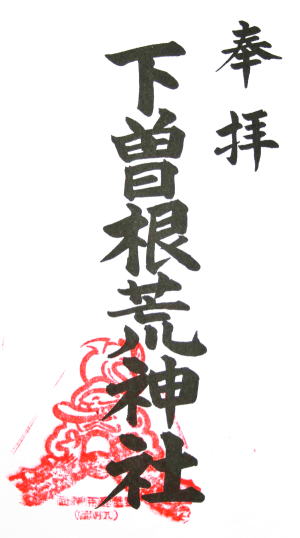 奉拝
下曽根荒神社